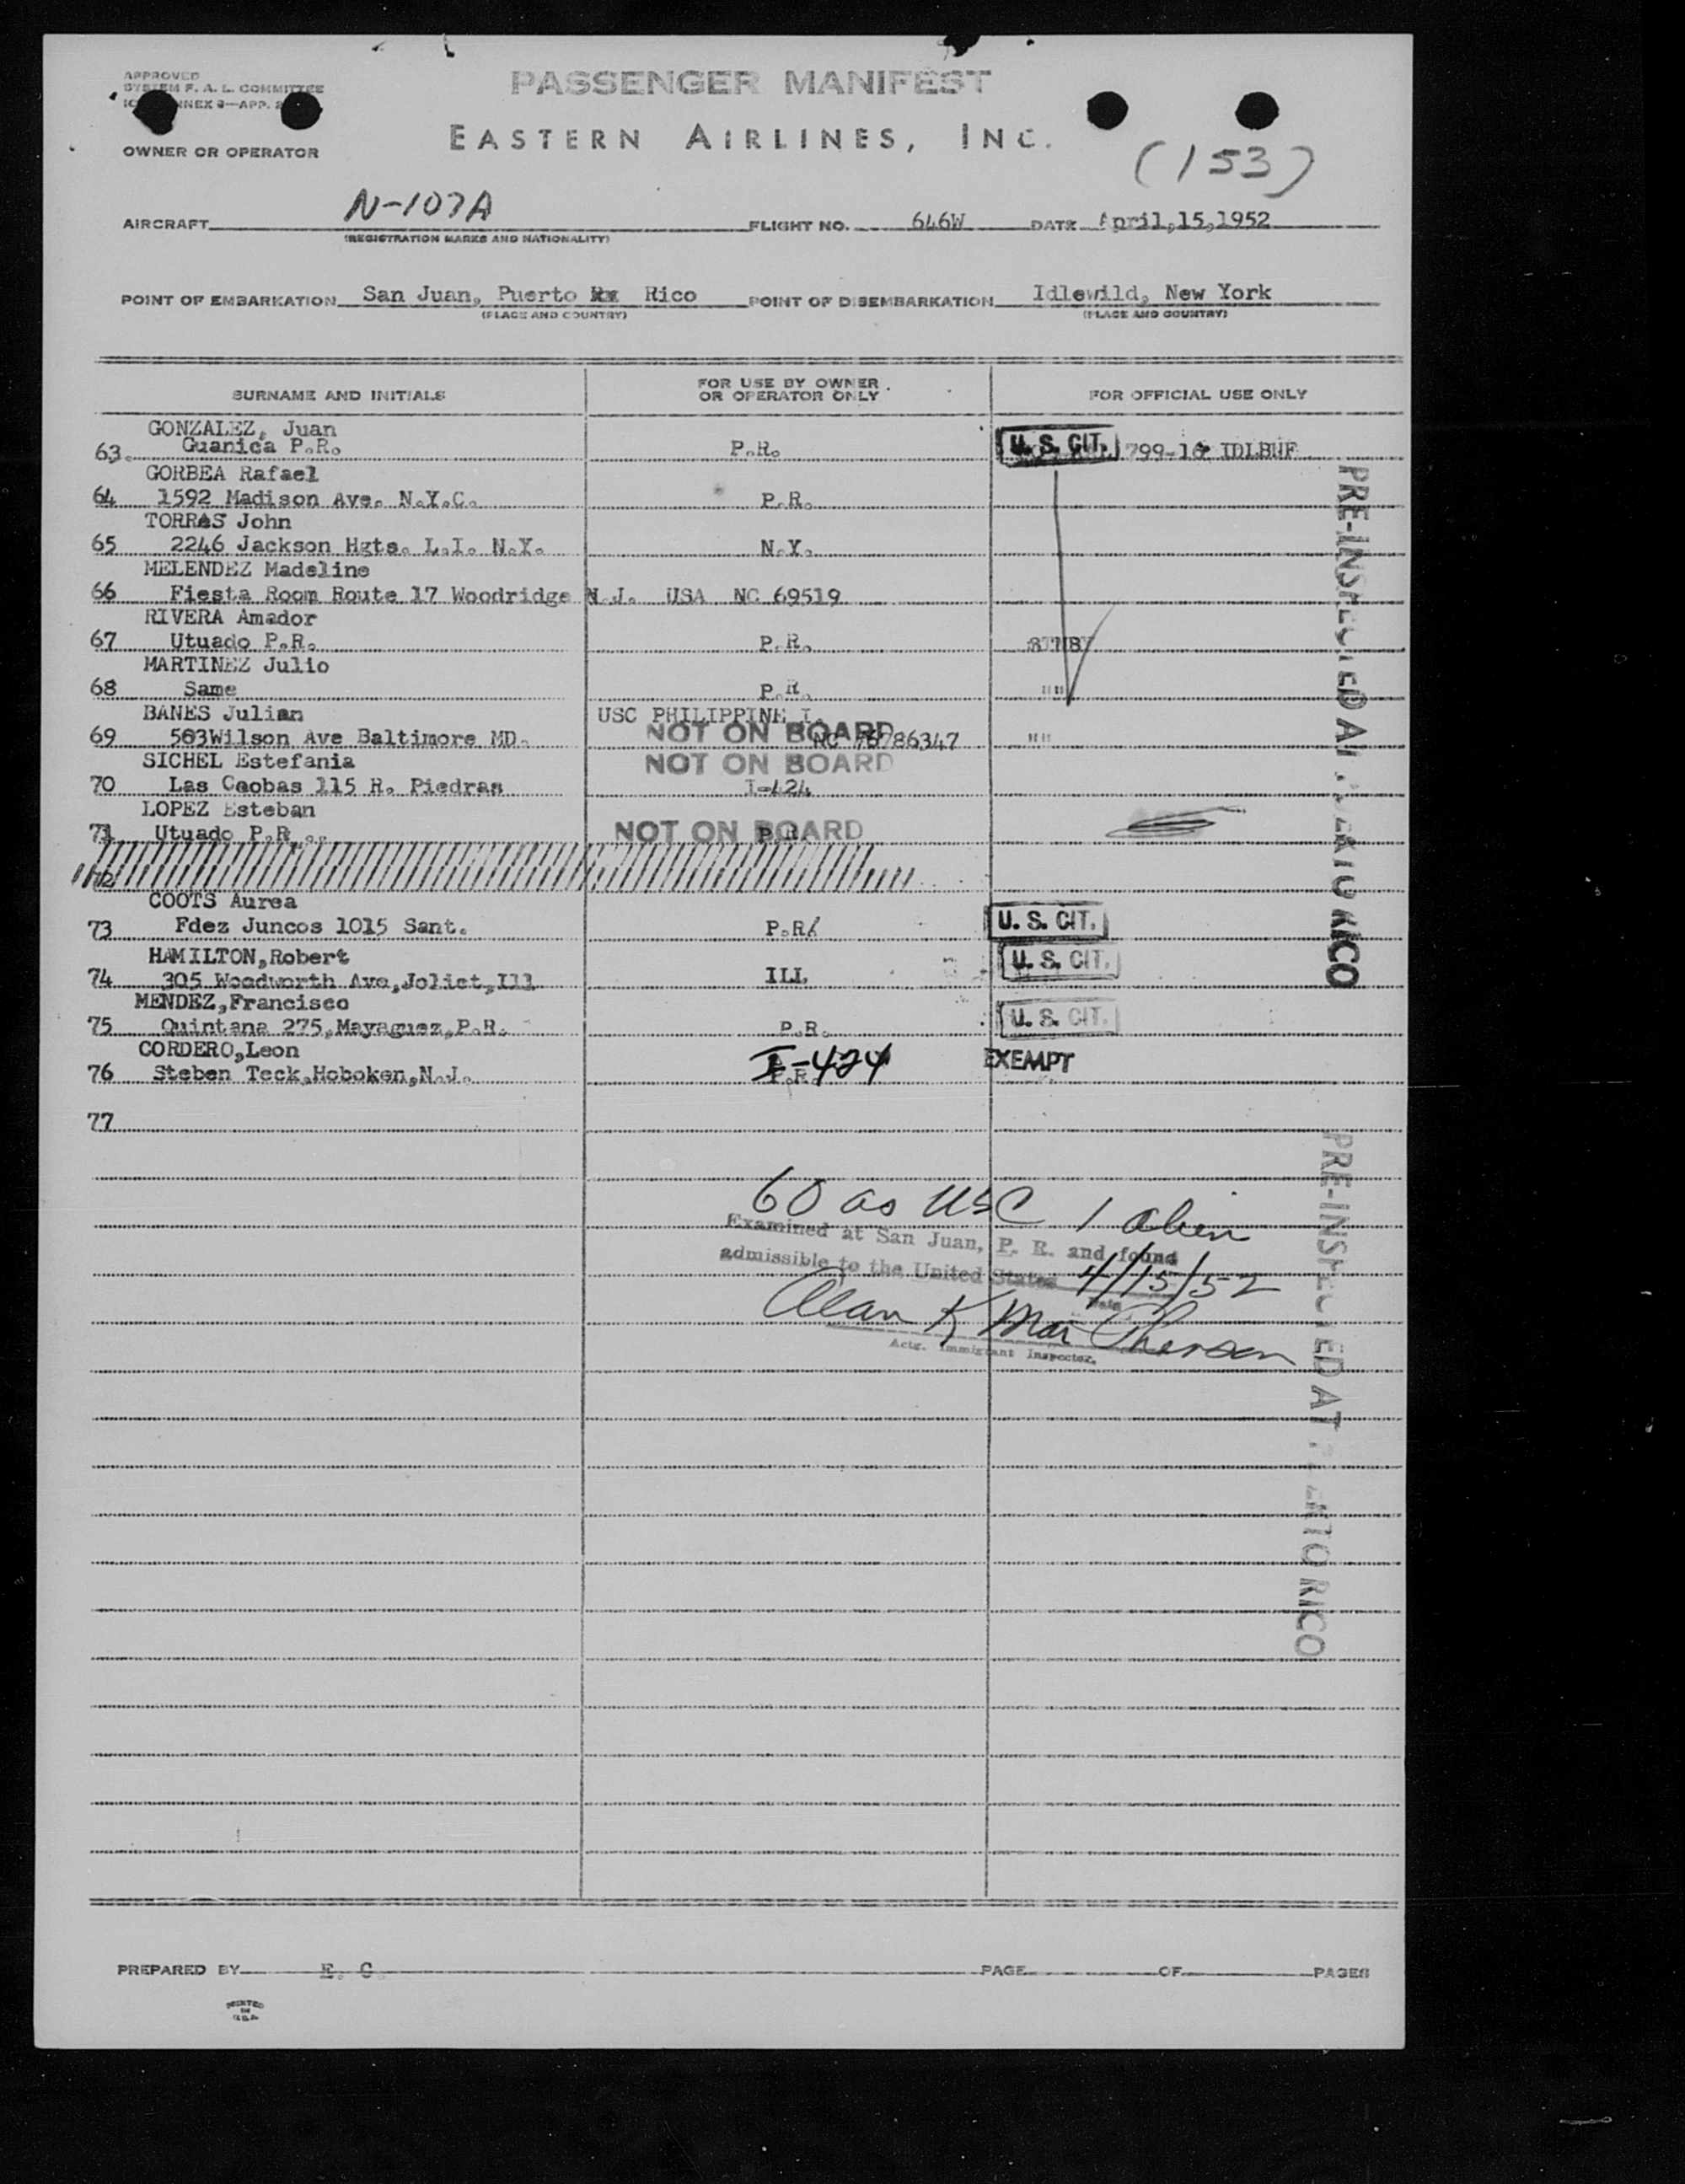 APPROVED
SYSTEM F. A. L. COMMITTEE
ANNEX 9—APP.
PASSENGER MANIFEST
EASTERN AIRLINES, INC.
OWNER OR OPERATOR
(153)
AIRCRAFT N-107A FLIGHT NO. 646W DATE April,15,1952
(REGISTRATION MARKS AND NATIONALITY)
POINT OF EMBARKATION San Juan, Puerto Rico POINT OF DISEMBARKATION Idlewild, New York
(PLACE AND COUNTRY) (PLACE AND COUNTRY)
SURNAME AND INITIALS FOR USE BY OWNER OR OPERATOR ONLY FOR OFFICIAL USE ONLY
GONZALEZ, Juan
63. Guanica P.R. P.R. U. S. CIT. 799-16 IDLBUF
GORBEA Rafael
64 1592 Madison Ave. N.Y.C. P.R.
TORRAS John
65 2246 Jackson Hgts. L.I. N.Y. N.Y.
MELENDEZ Madeline
66 Fiesta Room Route 17 Woodridge N.J. USA NC 69519
RIVERA Amador
67 Utuado P.R. P.R.
MARTINEZ Julio
68 Same P.R. ""
BANES Julian USC PHILIPPINE I.
69 503Wilson Ave Baltimore MD. NOT ON BOARD NC ""
SICHEL Estefania NOT ON BOARD
70 Las Caobas 115 R. Piedras I-424
LOPEZ Esteban
71 Utuado P.R. NOT ON BOARD P.R.
72
COOTS Aurea
73 Fdez Juncos 1015 Sant. P.R. U. S. CIT.
HAMILTON,Robert U. S. CIT.
74 305 Woodworth Ave,Joliet,Ill ILL
MENDEZ,Francisco
75 Quintana 275,Mayaguez,P.R. P.R. U. S. CIT.
CORDERO,Leon I-424 EXEMPT
76 Steben Teck,Hoboken,N.J. P.R.
77
60 as USC 1 alien
Examined at San Juan, P. R. and found
admissible to the United States 4/15/52
Date
Alan K MacPherson
Actg. Immigrant Inspector.
PRE-INSPECTED AT PUERTO RICO
PRE-INSPECTED AT PUERTO RICO
PREPARED BY E. C. PAGE OF PAGES
PRINTED
IN
U.S.A.